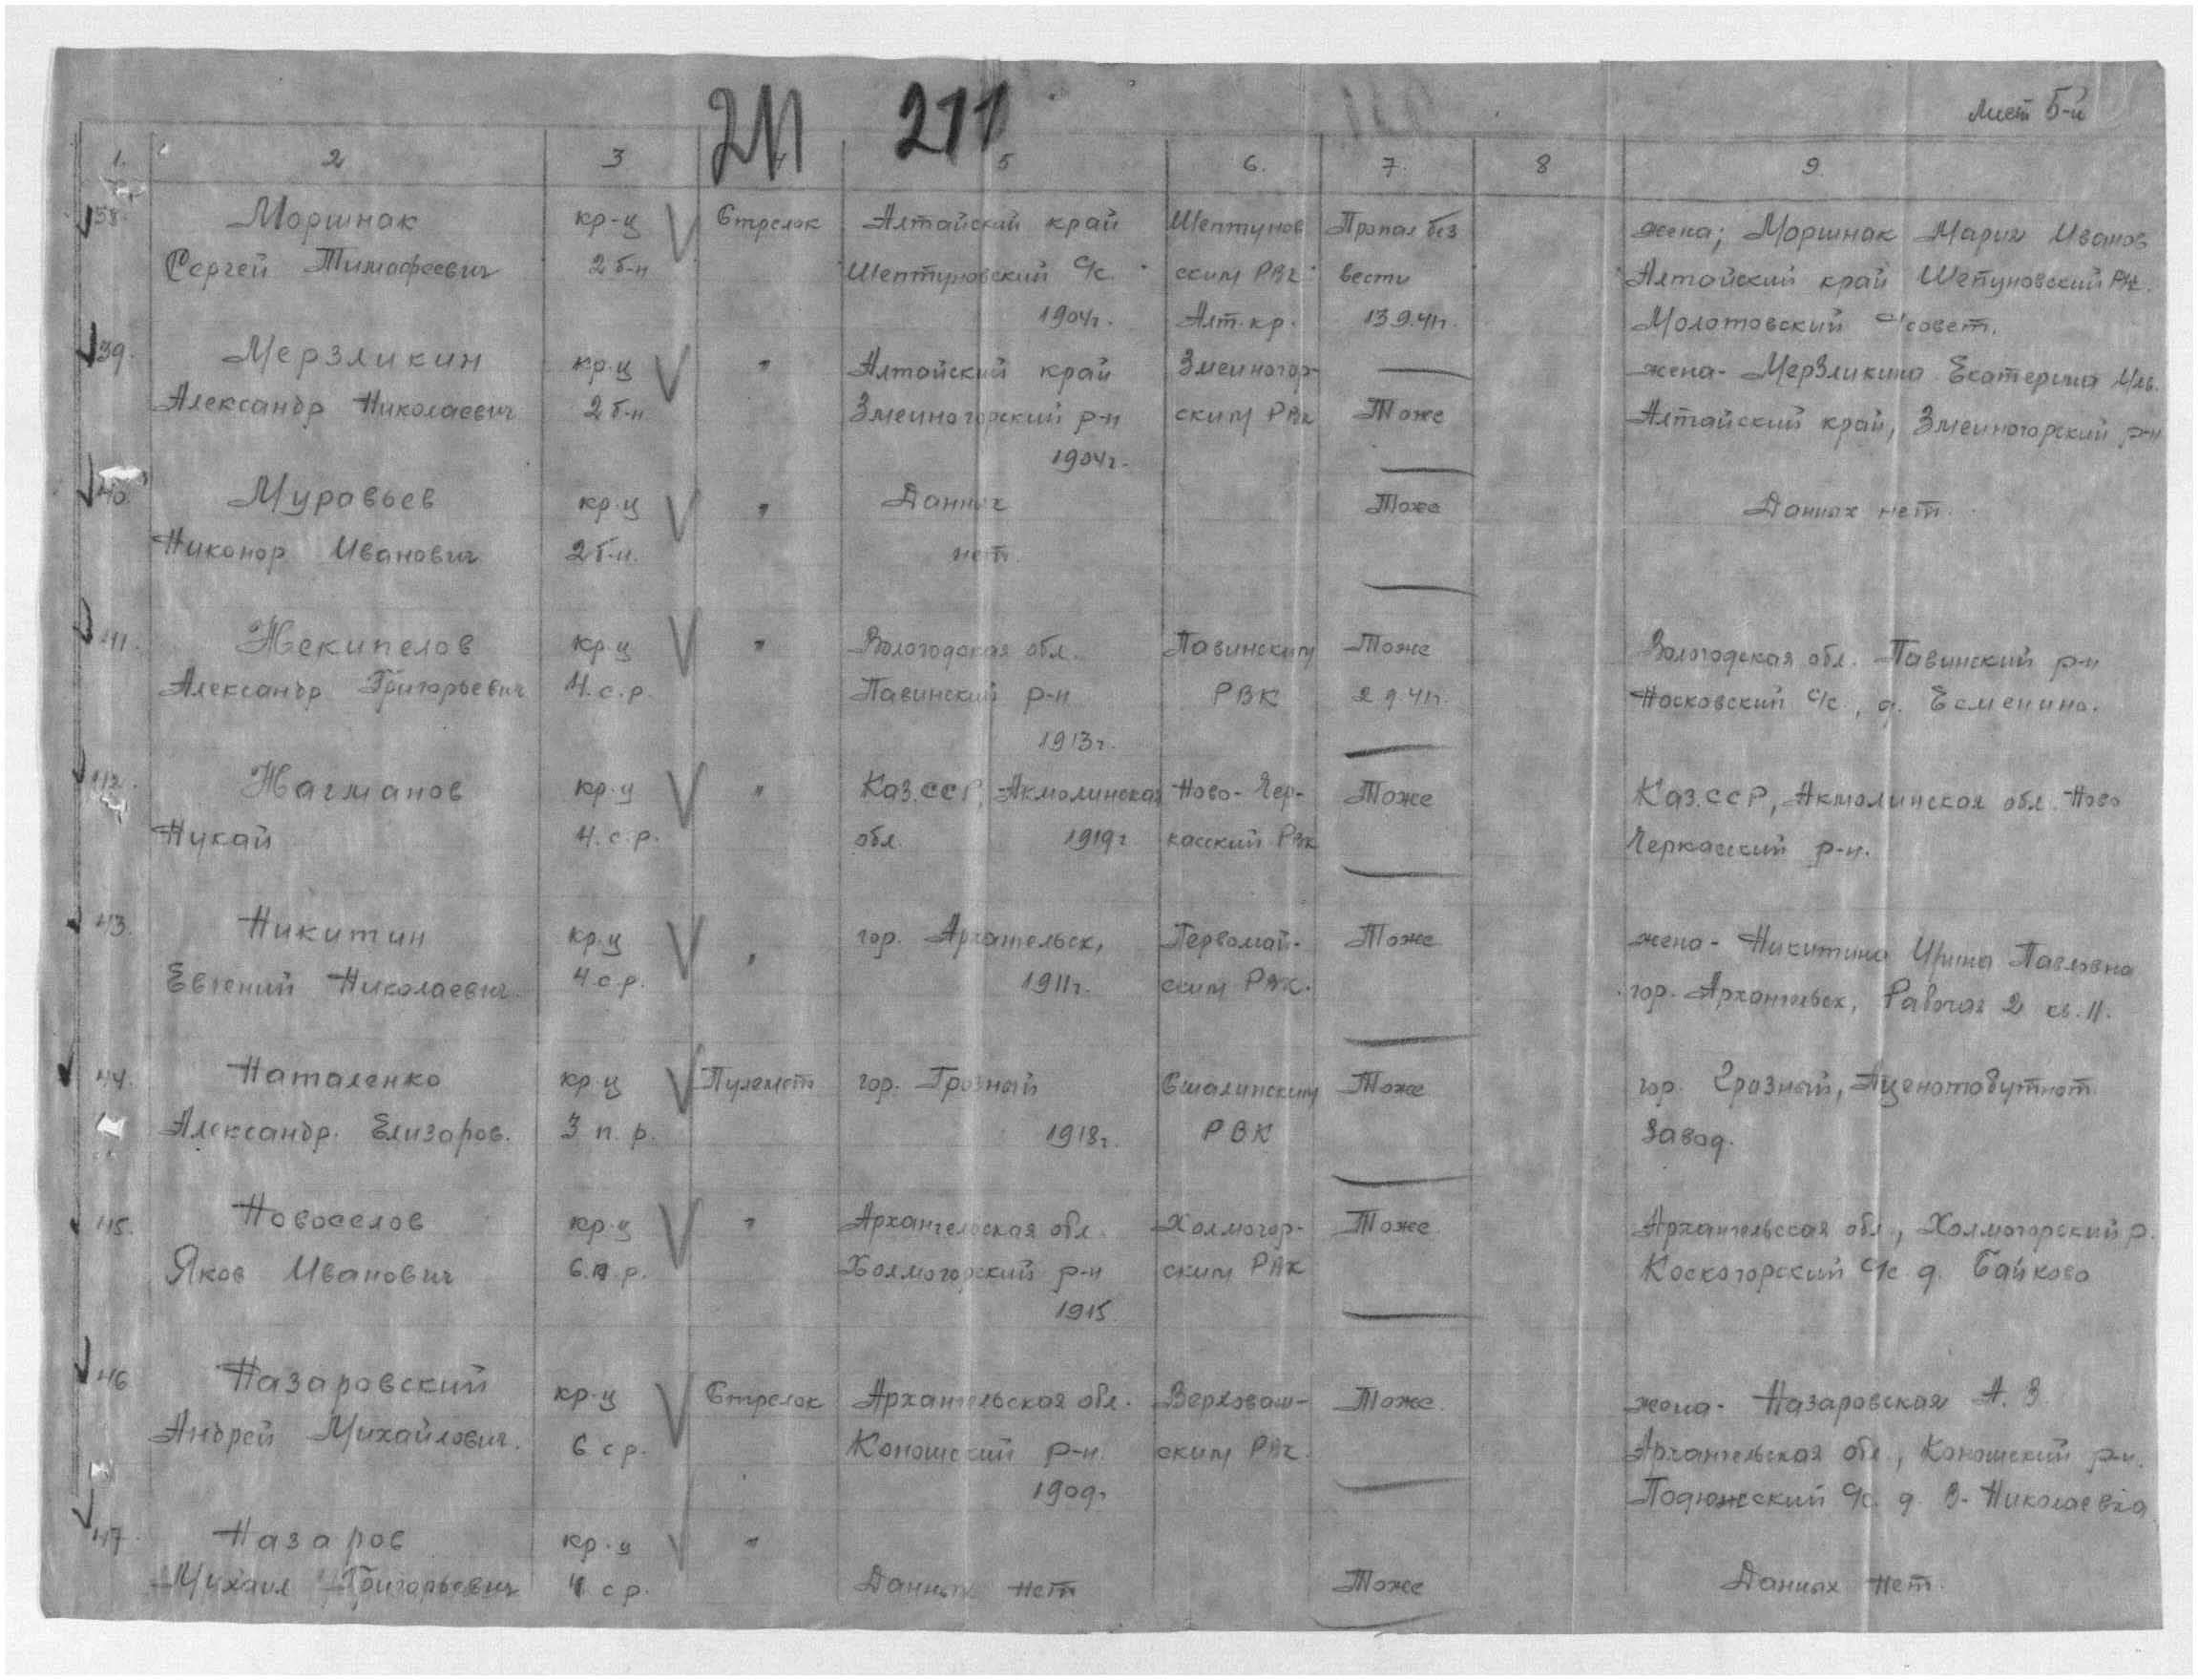 211 211
Лист 5-й
1. 2 3 4 5 6. 7. 8 9.
38. Моршнак кр-ц Стрелок Алтайский край Шептунов Пропал без жена; Моршнак Мария Иванов
Сергей Тимофеевич 2 б-н Шептуновский С/с. ским РВк вести Алтайский край Шепуновский РВк.
1904г. Алт.кр. 13 9.41г. Молотовский с/совет.
39. Мерзликин кр.ц " Алтайский край Змеиногор- жена- Мерзликина Екатерина Иль.
Александр Николаевич 2 б-н Змеиногорский р-н ским РВк Тоже Алтайский край, Змеиногорский р-н
1904г.
40. Муравьев кр.ц " Данных Тоже Данных нет.
Никонор Иванович 2 б-н. нет.
41. Некипелов кр.ц " Вологодская обл. Павинским Тоже Вологодская обл. Павинский р-н
Александр Григорьевич 4.с.р. Павинский р-н РВК 2 9.41г. Носковский с/с, д. Есменино.
1913г.
42. Нагманов кр.ц " Каз.ССР, Акмолинская Ново-Чер- Тоже Каз.ССР, Акмолинская обл. Ново
Нукай 4.с.р. обл. 1919г касский РВк Черкасский р-н.
43. Никитин кр.ц " гор. Архангельск, Первомай- Тоже жена- Никитина Ирина Павловна
Евгений Николаевич. 4 с.р. 1911г. ским РВК. гор. Архангельск, Рабочая 2 кв.11.
44. Наталенко кр.ц Пулемет гор. Грозный Тоже гор. Грозный,
Александр. Елизаров. 3 п.р. 1918г. РВК Завод.
45. Новоселов кр.ц " Архангельская обл. Холмогор- Тоже Архангельссая обл, Холмогорский р.
Яков Иванович 6.п.р. Холмогорский р-н ским РВК Коскогорский с/с д. Байково
1915
46 Назаровский кр.ц Стрелок Архангельская обл. Верховаж- Тоже жена- Назаровская А. З.
Андрей Михайлович. 6 ср. Коношский р-н. ским РВк. Архангельская обл, Коношский р-н.
1909г. Подюжский с/с. д. В-Николаевка
47. Назаров кр.ц "
Михаил Григорьевич 4 ср. Данных нет Тоже Данных нет.